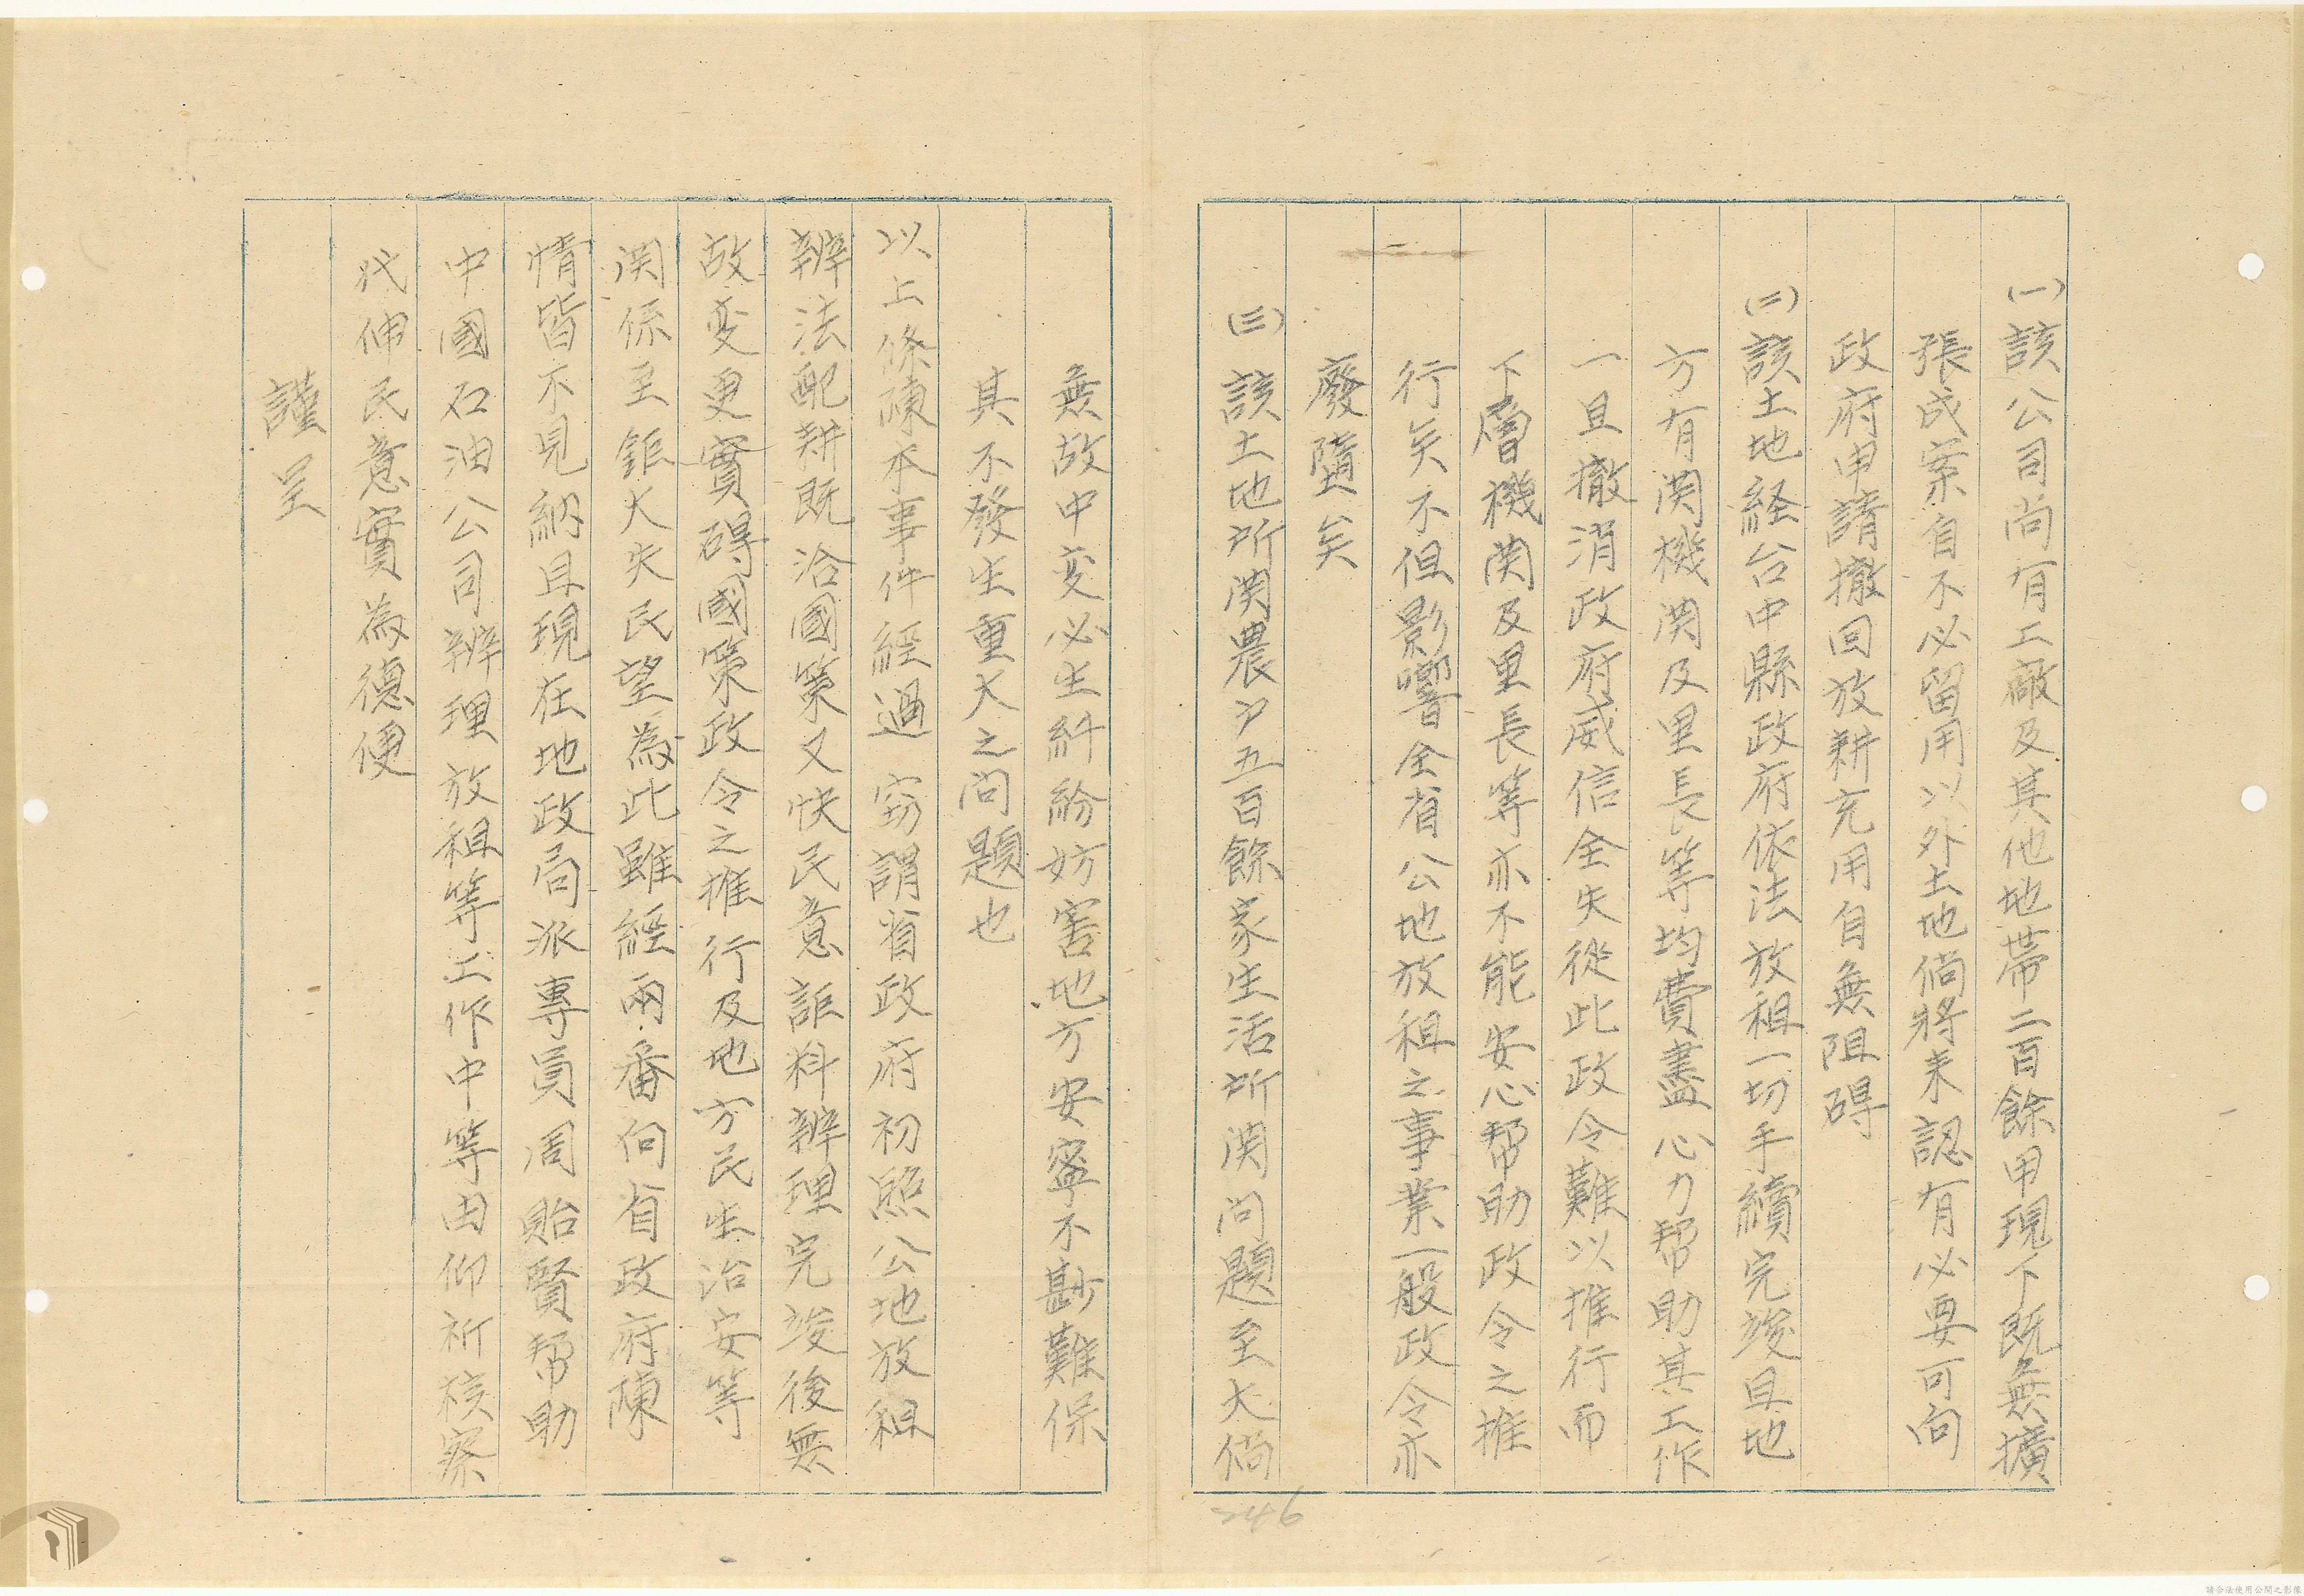 (一)該公司尚有工廠及其他地帶二百餘甲現下既無擴
張成案自不必留用以外土地倘將来認有必要可向
政府申請撤回放耕充用自無阻碍
(二)該土地経台中縣政府依法放租一切手續完竣且地
方有関機関及里長等均費盡心力帮助其工作
一旦撤消政府威信全失從此政令難以推行而
下層機関及里長等亦不能安心帮助政令之推
行矣不但影響全省公地放租之事業一般政令亦
廢墮矣
(三)該土地所関農戶五百餘家生活所関问題至大倘
無故中変必生糾紛妨害地方安寧不尠難保
其不發生重大之问題也
以上條陳本事件經過窃謂省政府初照公地放租
辦法配耕既洽國策又快民意詎料辦理完竣後無
故変更實碍國策政令之推行及地方民生治安等
関係至鉅大失民望為此雖經兩番向省政府陳
情皆不見納且現在地政局派專員周貽賢帮助
中國石油公司辦理放租等工作中等由仰祈核察
代伸民意實為德便
謹呈
246
請合法使用公開之影像